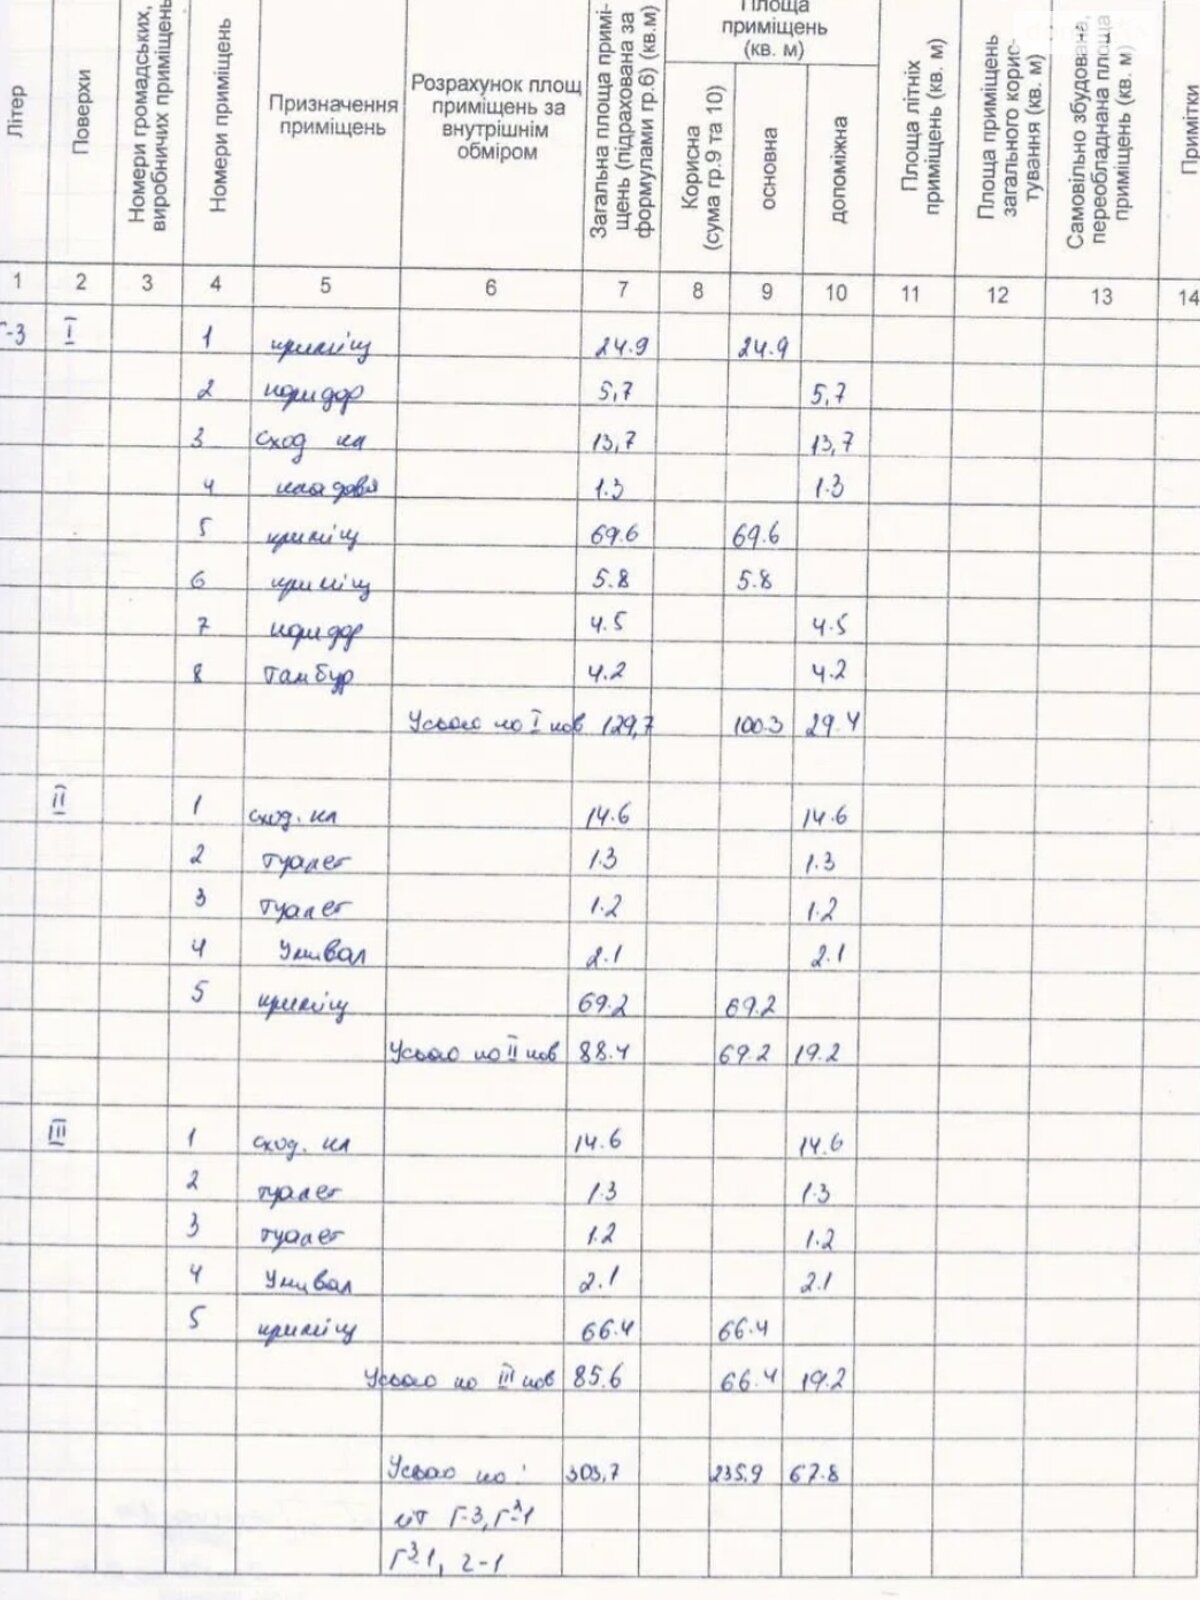 Літер
Поверхи
Номери громадських, виробничих приміщень
Номери приміщень
Призначення приміщень
Розрахунок площ приміщень за внутрішнім обміром
Загальна площа приміщень (підрахована за формулами гр.6) (кв.м)
Площа приміщень (кв. м)
Корисна (сума гр.9 та 10)
основна
допоміжна
Площа літніх приміщень (кв. м)
Площа приміщень загального користування (кв. м)
Самовільно збудована, переобладнана площа приміщень (кв. м)
Примітки
1 2 3 4 5 6 7 8 9 10 11 12 13 14
Г-3 I 1 приміщ 24.9 24.9
2 коридор 5,7 5,7
3 сход кл 13,7 13,7
4 кладова 1.3 1.3
5 приміщ 69.6 69.6
6 приміщ 5.8 5.8
7 коридор 4.5 4.5
8 тамбур 4.2 4.2
Усього по I пов 129,7 100.3 29.4
II 1 сход. кл 14.6 14.6
2 туалет 1.3 1.3
3 туалет 1.2 1.2
4 Умивал 2.1 2.1
5 приміщ 69.2 69.2
Усього по II пов 88.4 69.2 19.2
III 1 сход. кл 14.6 14.6
2 туалет 1.3 1.3
3 туалет 1.2 1.2
4 Умивал 2.1 2.1
5 приміщ 66.4 66.4
Усього по III пов 85.6 66.4 19.2
Усього по 303,7 235,9 67.8
літ Г-3, Г²-1
Г³-1, г-1